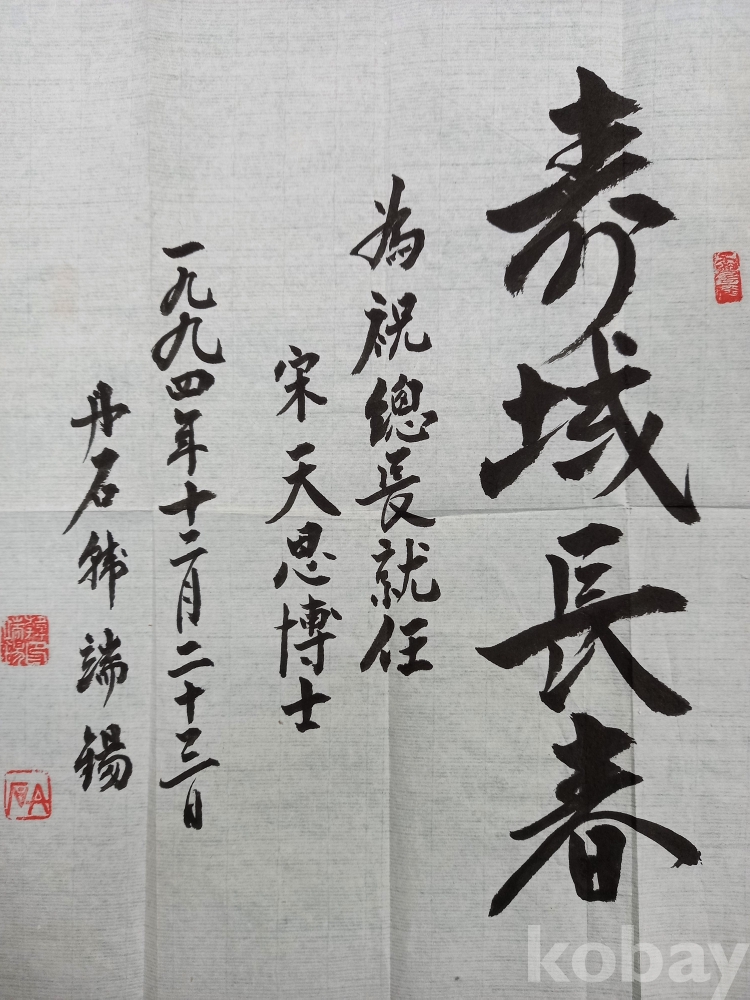 寿域長春
為祝總長就任
宋天恩博士
一九九四年十二月二十三日
丹石韓端錫
kobay